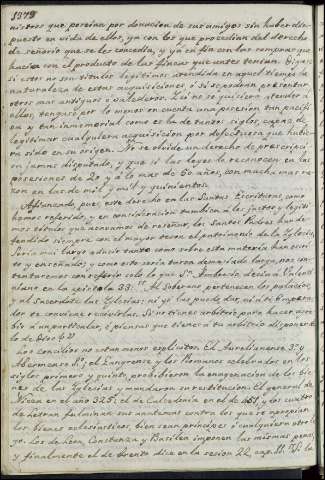 nistros que poseian por donacion de sus amigos sin haber dis-
puesto en vida de ellos, ya con los que procedian del derecho
de señorio que se les concedia, y ya en fin con las compras que
hacian con el producto de las fincas que antes tenian. Digase
si estos no son titulos legitimos atendida en aquel tiempo la
naturaleza de estas adquisiciones, ó si se podran presentar
otros mas antiguos ó valederos. Si no se quisiere atender á
ellos, tengase por lo menos en cuenta una posesion tan pacifi-
ca y tan inmemorial como es la de tantos siglos, capaz de
legitimar cualquiera adquisicion por defectuosa que hubie-
ra sido en su origen. No se olvide un derecho de prescripcion
en jamas disputado, y que si las leyes lo reconocen en las
posesiones de 20 y á lo mas de 60 años, con mucha mas ra-
zon en las de mil y mil y quinientos.
Afianzando pues este derecho en las Santas Escrituras, como
hemos referido, y en consideracion tambien á los justos y legiti-
mos titulos que acabamos de reseñar, los Santos Padres han de-
fendido siempre con el mayor teson el patrimonio de la Iglesia.
Seria muy largo aducir tanto como sobre esta materia han escri-
to y enseñado; y como esto seria tarea demasiado larga, nos con-
tentaremos con referir solo lo que Sn. Ambrosio decia á Valenti-
niano en la epistola 33: "Al Soberano pertenecen los palacios,
y al Sacerdote las Iglesias; ni yo las puedo dar, ni á ti Empera-
dor te conviene recibirlas. Si no tienes arbitrio para hacer
á un particular, ó piensas que tienes á tu arbitrio disponer de
lo de Dios?"
Los concilios no estan menos esplicitos. El Aurelianense 3.º y
el Cangrense y los Romanos celebrados en los
siglos primero y quinto, prohibieron la enagenacion de los bie-
nes de las Iglesias y mandaron su restitucion. El general de
Nicea en el año 325; el de Calcedonia en el de 451 y los cuatro
de Letran fulminan sus anatemas contra los que se apropian
los bienes eclesiasticos, bien sean principes ó cualquiera otro le-
go. Los de Leon, Constanza y Basilea imponen las mismas penas;
y finalmente el de Trento dice en la sesion 22 cap. 11. "Si la